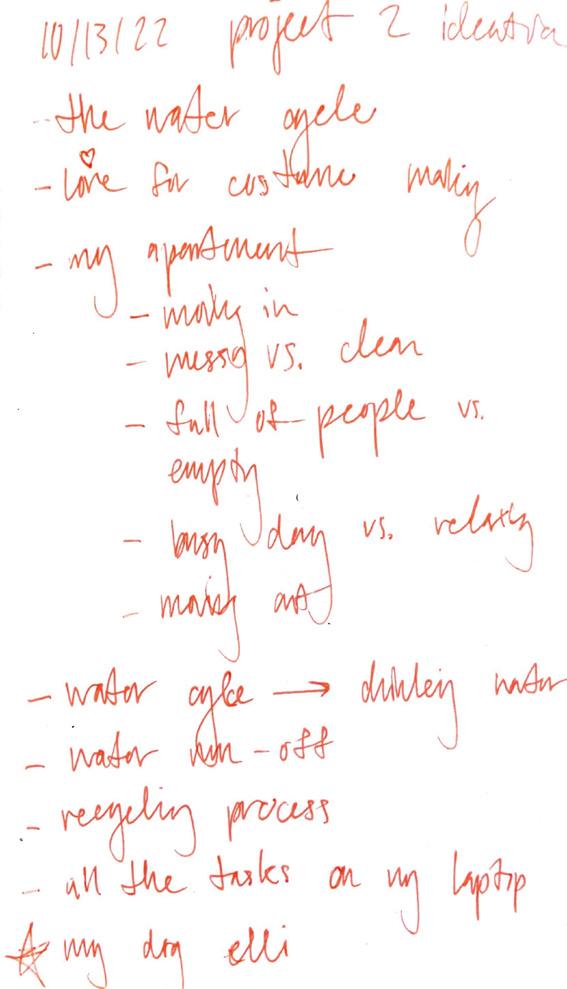 10/13/22 project 2 ideation
- the water cycle
- love for costume making
- my apartment
- moving in
- messy vs. clean
- full of people vs.
empty
- busy day vs. relaxing
- making art
- water cycle → drinking water
- water run-off
- recycling process
- all the tasks on my laptop
☆ my dog elli